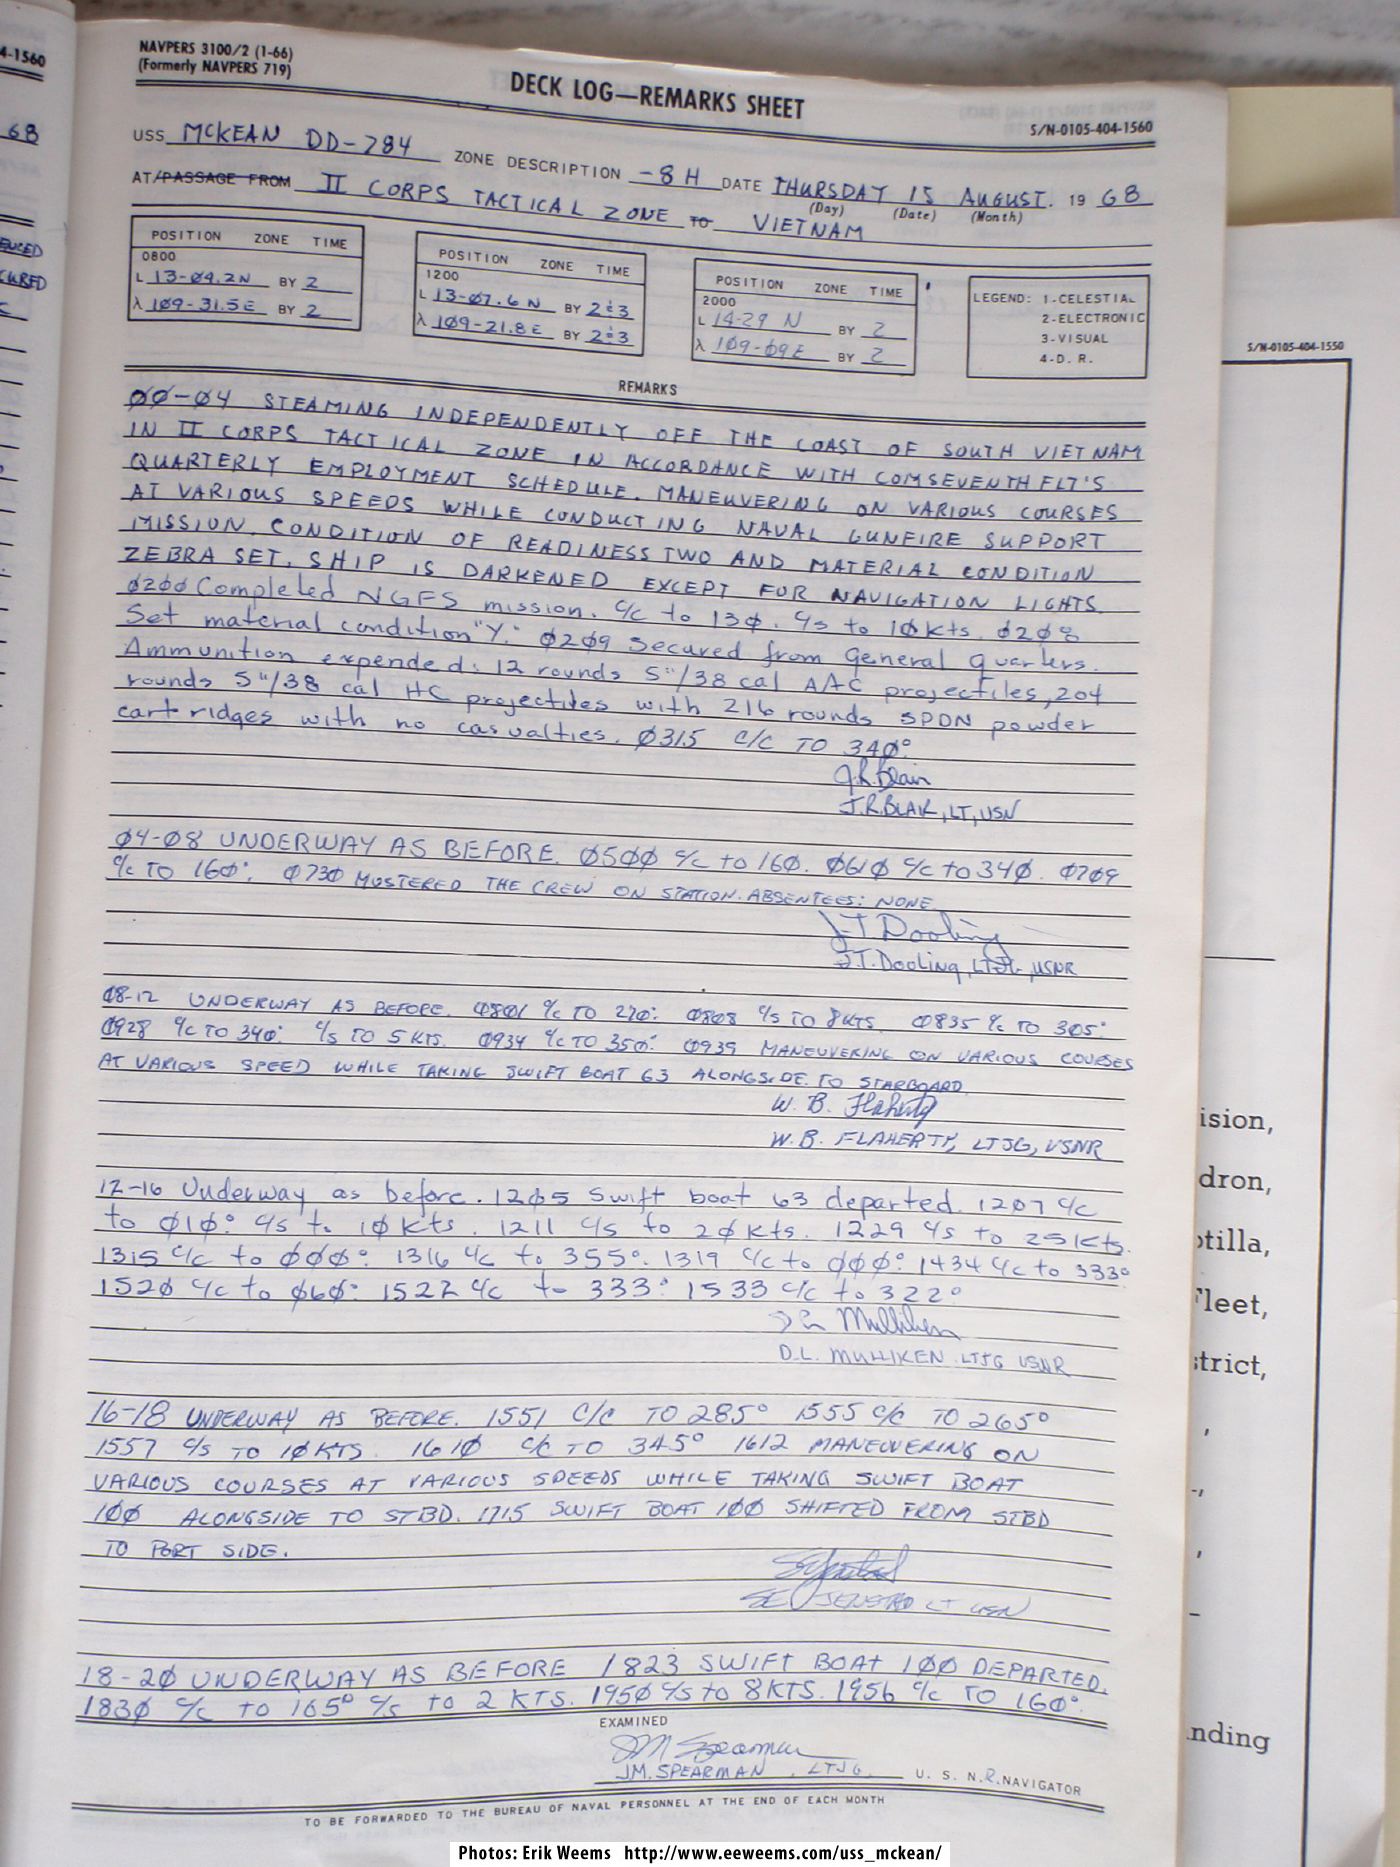 4-1560
68
NAVPERS 3100/2 (1-66)
(Formerly NAVPERS 719)
DECK LOG—REMARKS SHEET
S/N-0105-404-1560
USS MCKEAN DD-784 ZONE DESCRIPTION -8H DATE THURSDAY 15 AUGUST. 19 68
(Day) (Date) (Month)
AT/PASSAGE FROM II CORPS TACTICAL ZONE TO VIETNAM
POSITION ZONE TIME
0800
L 13-09.2N BY 2
λ 109-31.5E BY 2
POSITION ZONE TIME
1200
L 13-07.6N BY 2&3
λ 109-21.8E BY 2&3
POSITION ZONE TIME
2000
L 14-29 N BY 2
λ 109-09E BY 2
LEGEND: 1-CELESTIAL
2-ELECTRONIC
3-VISUAL
4-D. R.
REMARKS
ØØ-Ø4 STEAMING INDEPENDENTLY OFF THE COAST OF SOUTH VIETNAM
IN II CORPS TACTICAL ZONE IN ACCORDANCE WITH COMSEVENTHFLT'S
QUARTERLY EMPLOYMENT SCHEDULE. MANEUVERING ON VARIOUS COURSES
AT VARIOUS SPEEDS WHILE CONDUCTING NAVAL GUNFIRE SUPPORT
MISSION. CONDITION OF READINESS TWO AND MATERIAL CONDITION
ZEBRA SET. SHIP IS DARKENED EXCEPT FOR NAVIGATION LIGHTS.
Ø2ØØ Completed NGFS mission. C/C to 13Ø. C/S to 1Økts. Ø2Ø8
Set material condition "Y." Ø2Ø9 Secured from General Quarters.
Ammunition expended: 12 rounds 5"/38 cal AAC projectiles, 204
rounds 5"/38 cal HC projectiles with 216 rounds SPDN powder
cartridges with no casualties. Ø315 C/C TO 34Ø°.
J.R. Blair
J.R. BLAIR, LT, USN
Ø4-Ø8 UNDERWAY AS BEFORE. Ø5ØØ C/C to 16Ø. Ø61Ø C/C to 34Ø. Ø7Ø9
C/C TO 16Ø°. Ø73Ø MUSTERED THE CREW ON STATION. ABSENTEES: NONE
J T Dooling
J.T. Dooling, LTJG, USNR
Ø8-12 UNDERWAY AS BEFORE. Ø8Ø1 C/C TO 27Ø°. Ø8Ø8 C/S TO 8KTS. Ø835 C/C TO 305°.
Ø928 C/C TO 34Ø°. C/S TO 5 KTS. Ø934 C/C TO 35Ø°. Ø939 MANEUVERING ON VARIOUS COURSES
AT VARIOUS SPEED WHILE TAKING SWIFT BOAT 63 ALONGSIDE TO STARBOARD.
W. B. Flaherty
W.B. FLAHERTY, LTJG, USNR
12-16 Underway as before. 12Ø5 Swift boat 63 departed. 12Ø7 C/C
to Ø1Ø°. C/S to 1Økts. 1211 C/S to 2Økts. 1229 C/S to 25kts.
1315 C/C to ØØØ°. 1316 C/C to 355°. 1319 C/C to ØØØ°. 1434 C/C to 333°
152Ø C/C to Ø6Ø°. 1522 C/C to 333°. 1533 C/C to 322°
D L Mulliken
D.L. MULLIKEN LTJG USNR
16-18 UNDERWAY AS BEFORE. 1551 C/C TO 285° 1555 C/C TO 265°
1557 C/S TO 1ØKTS. 161Ø C/C TO 345° 1612 MANEUVERING ON
VARIOUS COURSES AT VARIOUS SPEEDS WHILE TAKING SWIFT BOAT
1ØØ ALONGSIDE TO STBD. 1715 SWIFT BOAT 1ØØ SHIFTED FROM STBD
TO PORT SIDE.
LT USN
18-2Ø UNDERWAY AS BEFORE 1823 SWIFT BOAT 1ØØ DEPARTED.
183Ø C/C TO 165° C/S to 2 KTS. 195Ø C/S to 8KTS. 1956 C/C TO 16Ø°.
EXAMINED
JM Spearman
JM. SPEARMAN, LTJG, U. S. N.R. NAVIGATOR
TO BE FORWARDED TO THE BUREAU OF NAVAL PERSONNEL AT THE END OF EACH MONTH
S/N-0105-404-1550
ision,
dron,
otilla,
Fleet,
strict,
nding
Photos: Erik Weems http://www.eeweems.com/uss_mckean/